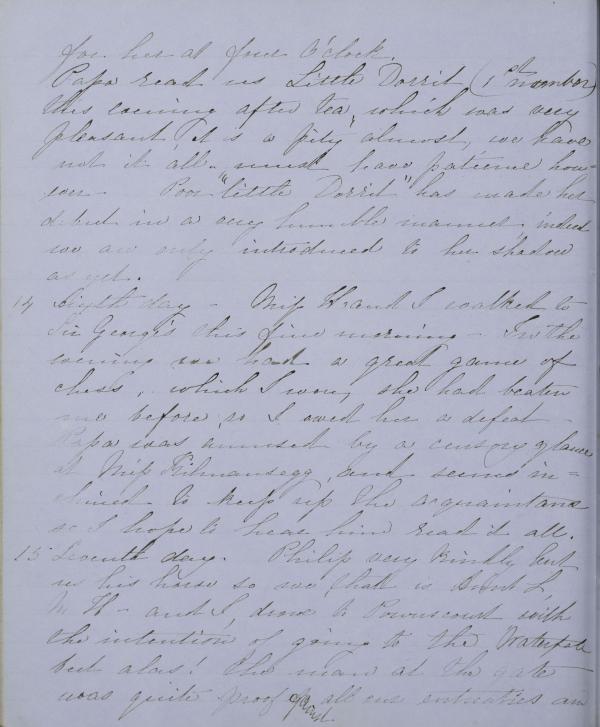 for her at four O'clock.
Papa read us Little Dorrit (1st number)
this evening after tea, which was very
pleasant, it is a pity almost, we have
not it all. must have patience how=
ever - Poor "little Dorrit" has made her
debut in a very humble manner, indeed
we are only introduced to her shadow
as yet.
14 Sixth day - Miss H. and I walked to
Sir George's this fine morning - In the
evening we had a great game of
chess, which I won, she had beaten
me before, so I owed her a defeat -
Papa was amused by a cursory glance
at Miss Kilmansegg, and seems in=
clined to keep up the acquaintance
so I hope to hear him read it all.
15 Seventh day. Philip very kindly lent
us his horse so we, that is Aunt L,
M H - and I, drove to Powerscourt with
the intention of going to the Waterfall
but alas! the man at the gate
was quite proof against all our entreaties and